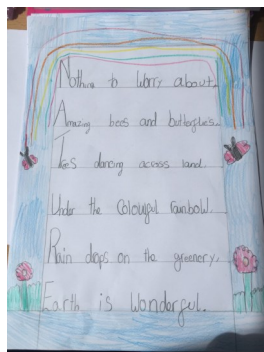 Nothing to worry about.
Amazing bees and butterflies.
Trees dancing across land.
Under the Colourful rainbow.
Rain drops on the greenery.
Earth is Wonderful.